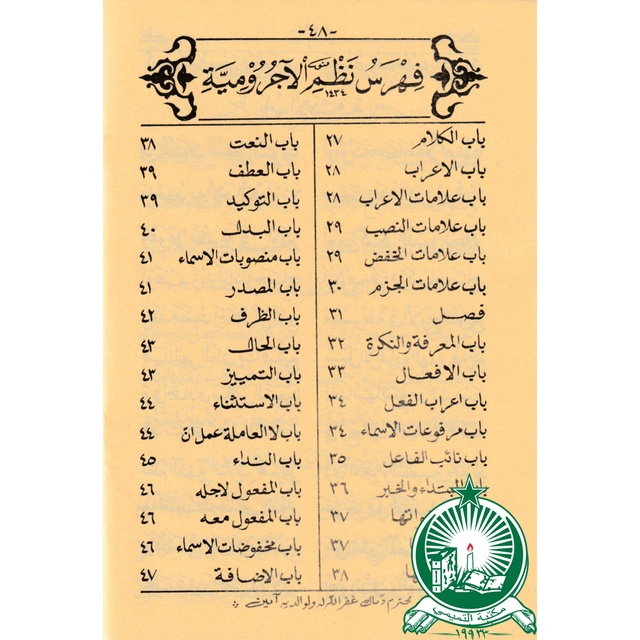 -٤٨-
فِهْرِسُ نَظْمِ الْآجُرُّومِيَّةِ
١٤٣٤
باب الكلام ٢٧
باب الاعراب ٢٨
باب علامات الاعراب ٢٨
باب علامات النصب ٢٩
باب علامات الخفض ٢٩
باب علامات الجزم ٣٠
فصل ٣١
باب المعرفة والنكرة ٣٢
باب الافعال ٣٣
باب اعراب الفعل ٣٤
باب مرفوعات الاسماء ٣٤
باب نائب الفاعل ٣٥
المبتداء والخبر ٣٦
٣٧
٣٧
٣٨
باب النعت ٣٨
باب العطف ٣٩
باب التوكيد ٣٩
باب البدل ٤٠
باب منصوبات الاسماء ٤١
باب المصدر ٤١
باب الظرف ٤٢
باب الحال ٤٣
باب التمييز ٤٣
باب الاستثناء ٤٤
باب لا العاملة عمل انّ ٤٤
باب النداء ٤٥
باب المفعول لاجله ٤٦
باب المفعول معه ٤٦
باب مخفوضات الاسماء ٤٦
باب الاضافة ٤٧
غفر الله له ولوالديه آمين
مكتبة التميمي
١٩٩٣